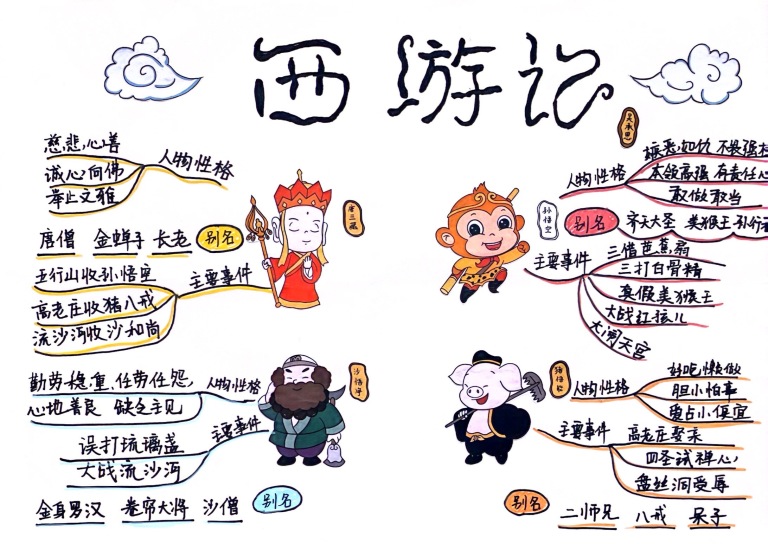 西游记
吴承恩
慈悲,心善
诚心向佛
举止文雅
人物性格
唐三藏
唐僧 金蝉子 长老 别名
五行山收孙悟空
高老庄收猪八戒
流沙河收沙和尚
主要事件
孙悟空
人物性格
嫉恶如仇 不畏强
本领高强 有责任心
敢做敢当
别名 齐天大圣 美猴王 孙行
主要事件
三借芭蕉扇
三打白骨精
真假美猴王
大战红孩儿
大闹天宫
沙悟净
勤劳稳重,任劳任怨,
心地善良 缺乏主见
人物性格
误打琉璃盏
大战流沙河
主要事件
金身罗汉 卷帘大将 沙僧 别名
猪悟能
人物性格
好吃懒做
胆小怕事
爱占小便宜
主要事件
高老庄娶亲
四圣试禅心,
盘丝洞受辱
别名 二师兄 八戒 呆子